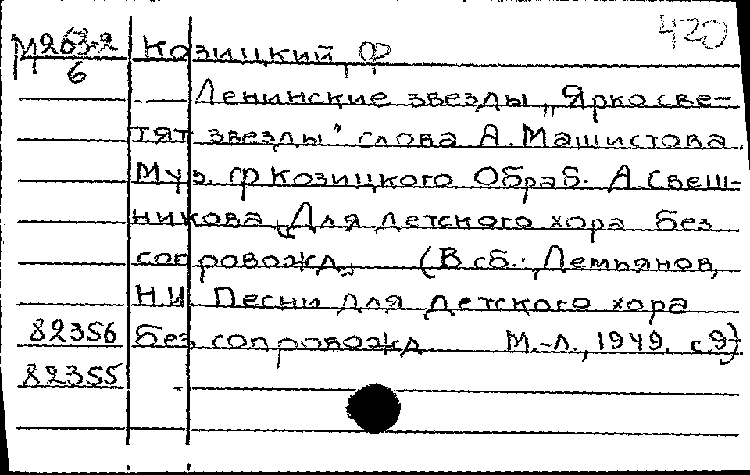 420
М263-2 Козицкий, Ф
6
Ленинские звезды „Ярко све-
тят звезды" слова А. Машистова.
Муз. Ф Козицкого Обраб. А. Свеш-
никова Для детского хора без
сопровожд. (В сб.: Демьянов,
Н.И. Песни для детского хора
82356 без сопровожд М.-Л., 1949. с.9)
82355